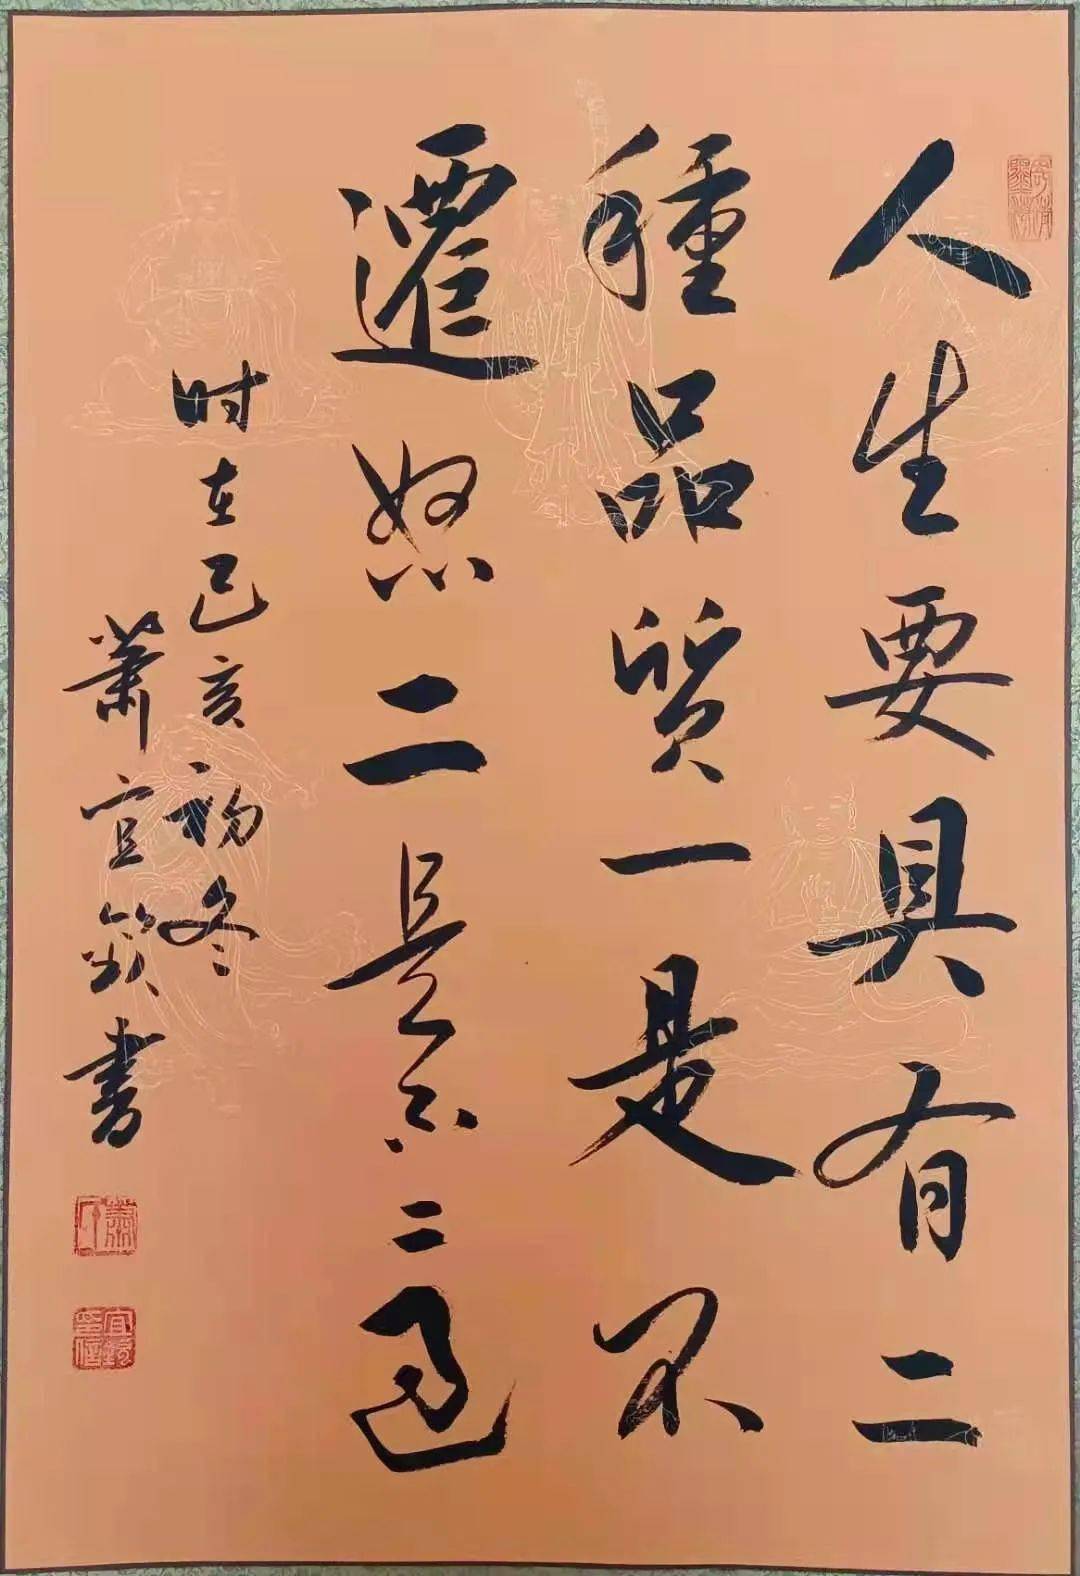 人生要具有二
種品質一是不
遷怒二是不二過
时在己亥初冬
蕭宜書